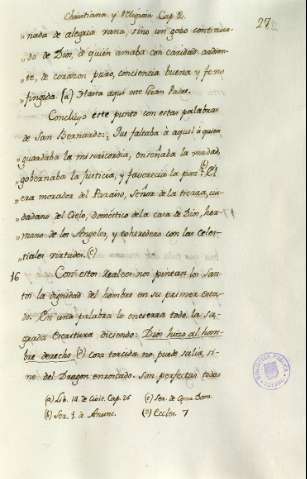 Christiana, y Religiosa Cap. 2.
27
"nada de alegria vana, sino un gozo continua-
"do de Dios, de quien amaba con caridad ardien-
"te, de corazon puro, conciencia buena y fe no
"fingida (a) Hasta aqui este Gran Padre.
Concluyo este punto con estas palabras
de San Bernardo: Que faltaba à aquel à quien
"guardaba la misericordia, enseñaba la verdad,
"gobernaba la justicia, y favorecia la paz (b) El
era morador del Paraiso, Señor de la tierra, ciu-
dadano del Cielo, domestico de la casa de Dios, her-
mano de los Angeles, y coheredero con las celes-
tiales virtudes. (c)
16 Con estos realces nos pintan los San-
tos la dignidad del hombre en su primer esta-
do. En una palabra lo encierra todo la Sa-
grada Escritura diciendo: Dios hizo al hom-
bre derecho, (e) cosa torcida no puede salir, si-
no del Dragon enroscado. San perfectas todas
(a) Lib. 14. de Civit. Cap. 26
(b) Ser. 1. de Anunc.
(c) Ser. de Dom.
(e) Eccles. 7